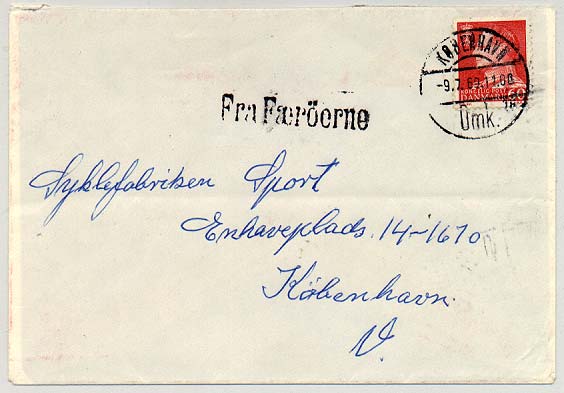 KØBENHAVN
Omk.
KONGELIG POST
DANMARK 60
Fra Færöerne
Syklefabriken Sport
Enhaveplads. 14-1670
København.
V.